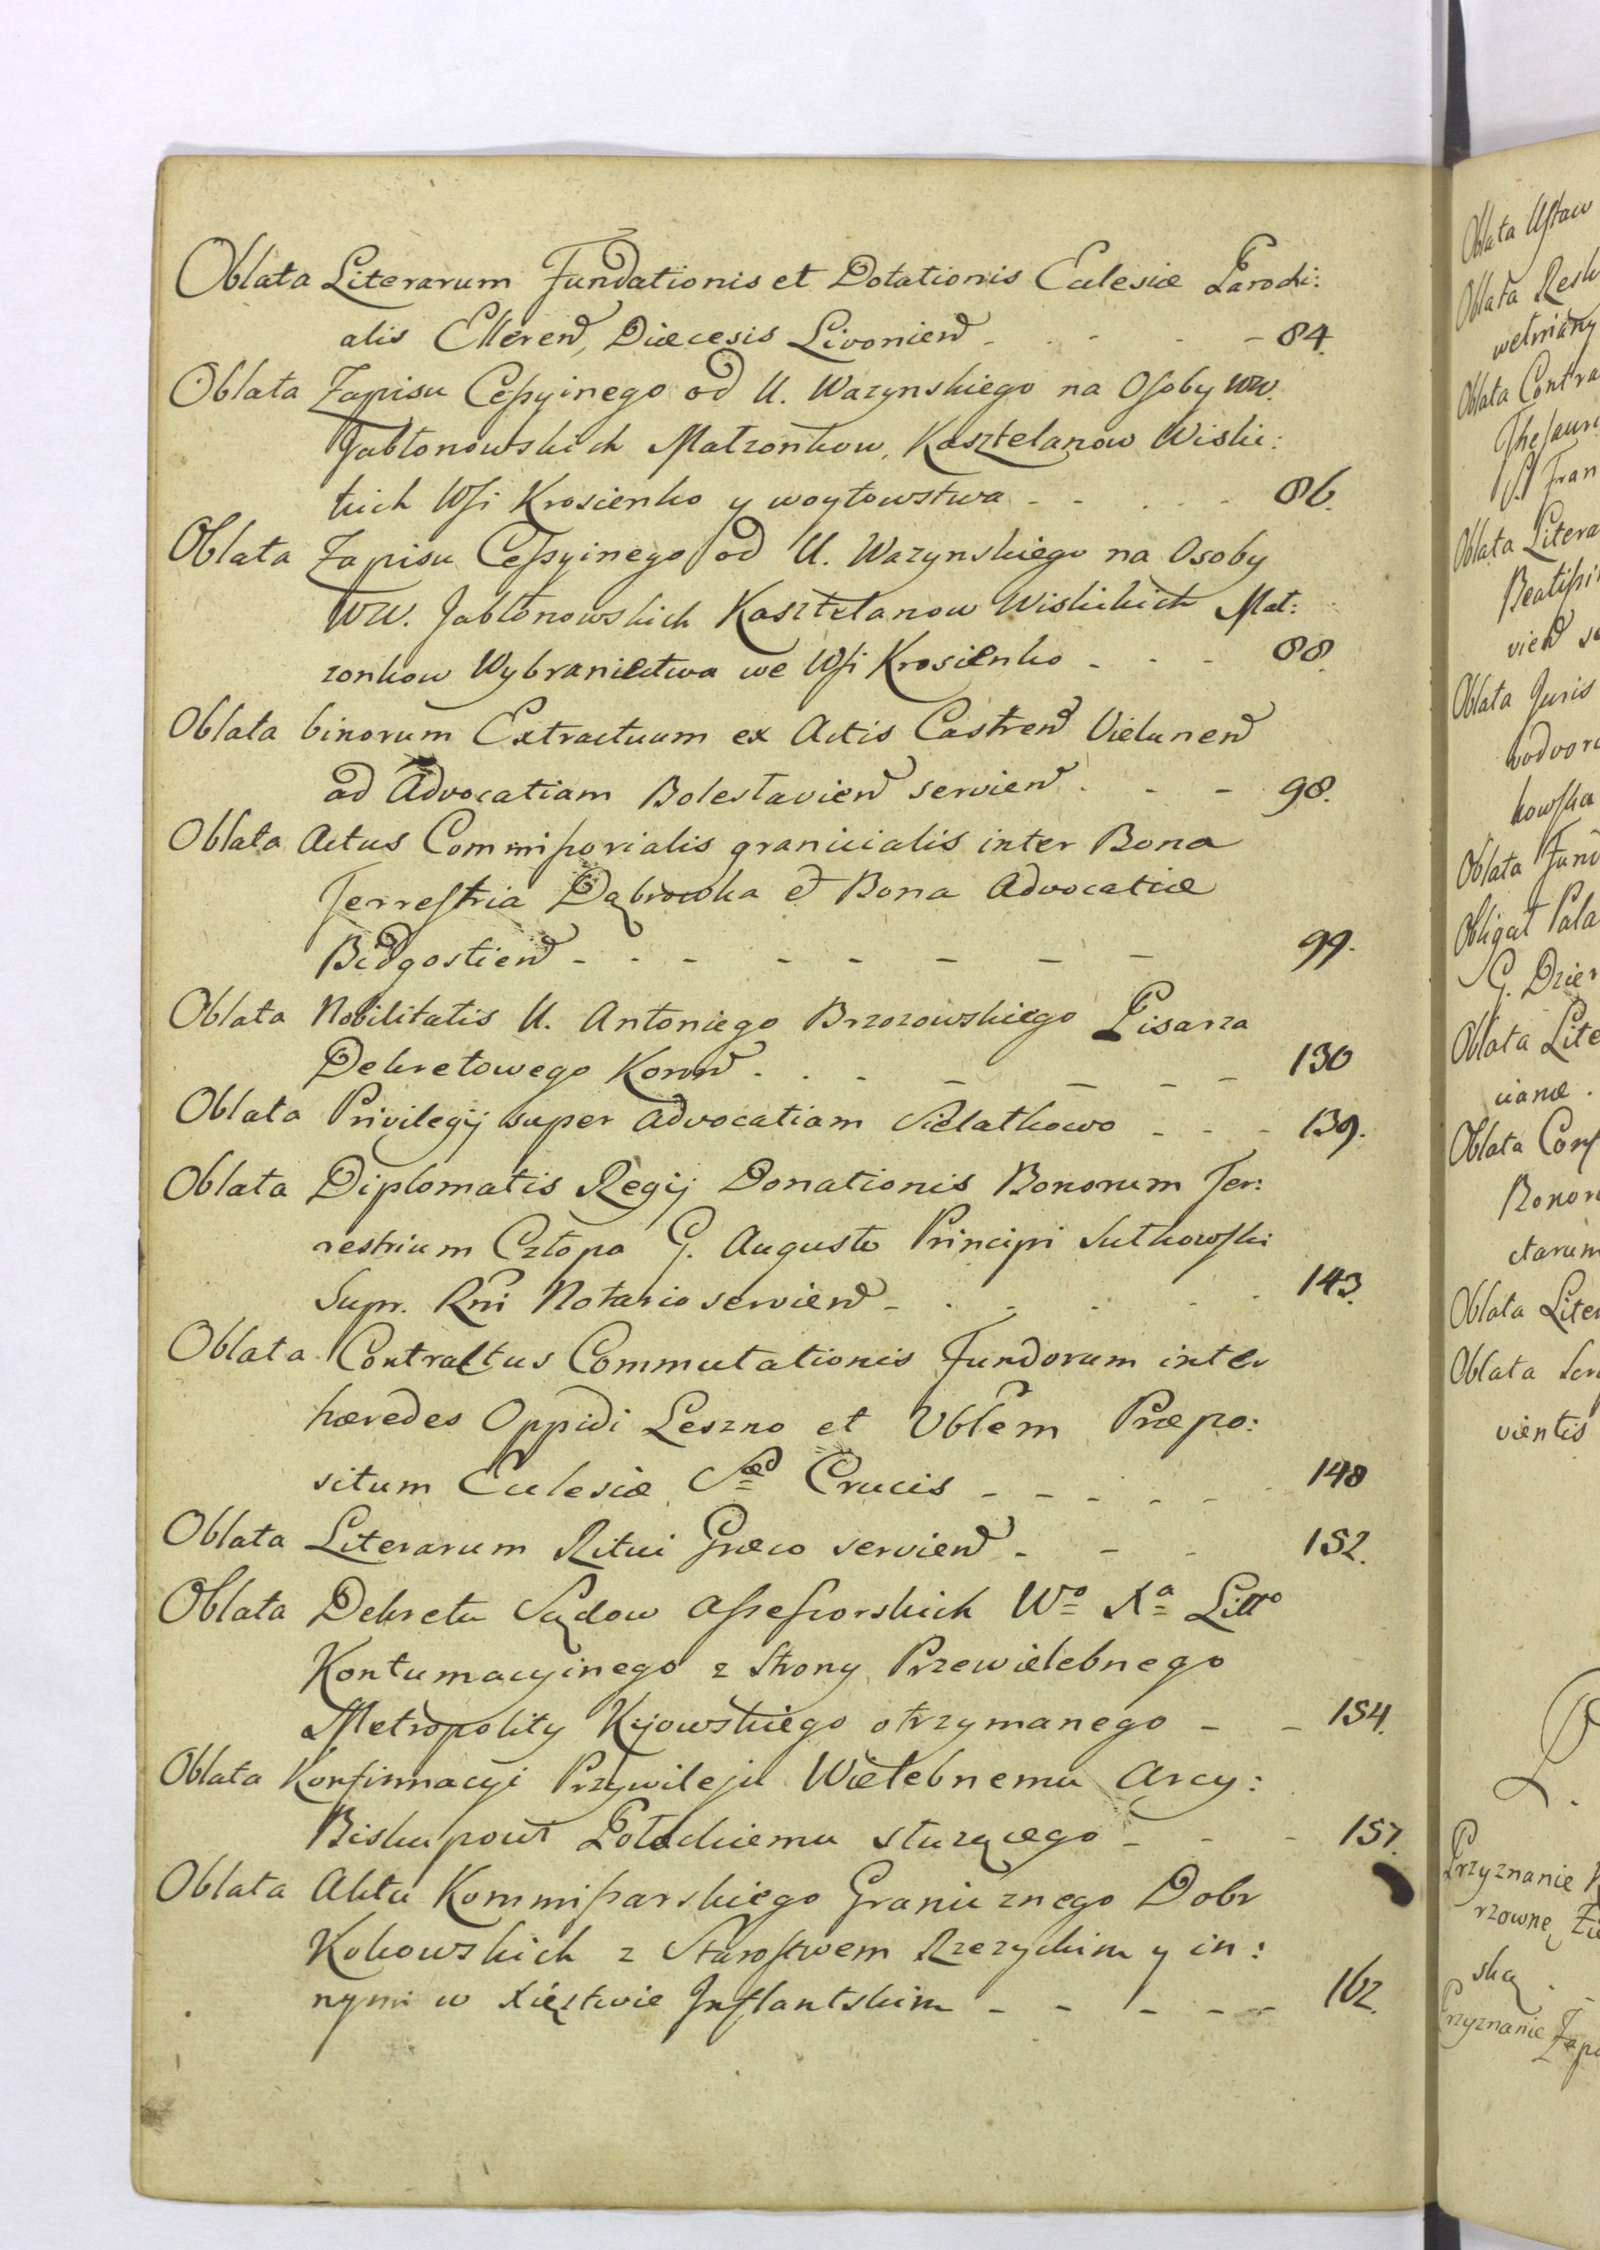 Oblata Literarum Fundationis et Dotationis Eccleſiæ Parochi:
alis Elleren̄, Diæcesis Livonien̄ - - - - 84.
Oblata Zapisu Ceſsyinego od U. Wazynskiego na Oſoby WW.
Jabłonowskich Małzonkow, Kasztelanow Wisli:
ckich Wſi Krosienko y woytowstwa - - - - 86.
Oblata Zapisu Ceſsyinego od U. Wazynskiego na Osoby
WW. Jabłonowskich Kasztelanow Wislickich Mał:
zonkow Wybraniectwa we Wſi Krosienko - - - 88.
Oblata binorum Extractuum ex Actis Castren̄ Vielunen̄
ad Advocatiam Boleslavien̄ servien̄ - - - 98.
Oblata Actus Commiſsorialis granicialis inter Bona
Terreſtria Dąbrowka et Bona Advocatiæ
Bidgostien̄ - - - - - - - - 99.
Oblata Nobilitatis U. Antoniego Brzozowskiego Pisarza
Dekretowego Koron̄ - - - - - - - 130
Oblata Privilegij super Advocatiam Sielatkowo - - - 139.
Oblata Diplomatis Regij Donationis Bonorum Ter:
restrium Człopa G. Augusto Principi Sułkowſki
Supr. Rni Notario servien̄ - - - - - - 143.
Oblata Contractus Commutationis Fundorum inter
hæredes Oppidi Leszno et Vblem Præpo:
situm Eccleſiæ Sæ Crucis - - - - - - 148
Oblata Literarum Ritui Græco servien̄ - - - 152.
Oblata Dekretu Sądow Aſseſsorskich Wº Xª Littº
Kontumacyinego z Strony Przewielebnego
Metropolity Kijowskiego otrzymanego - - 154.
Oblata Konfirmacyi Przywileju Wielebnemu Arcy:
Biskupowi Połockiemu słuzącego - - - 157.
Oblata Aktu Kommiſsarskiego Granicznego Dobr
Kokowskich z Staroſtwem Rzezyckim y in:
nymi w Xięstwie Inflantskim - - - - - 162.
Oblata Uſtaw
Oblata
wełniany
Oblata Contra
Oblata Litera
Oblata Juris
Oblata Fund
Obligat Pala
G. Dzier
Oblata Lite
Oblata
Oblata Liter
Oblata
vientis
Przyznanie
rzownę
ską
Przyznanie Zapi